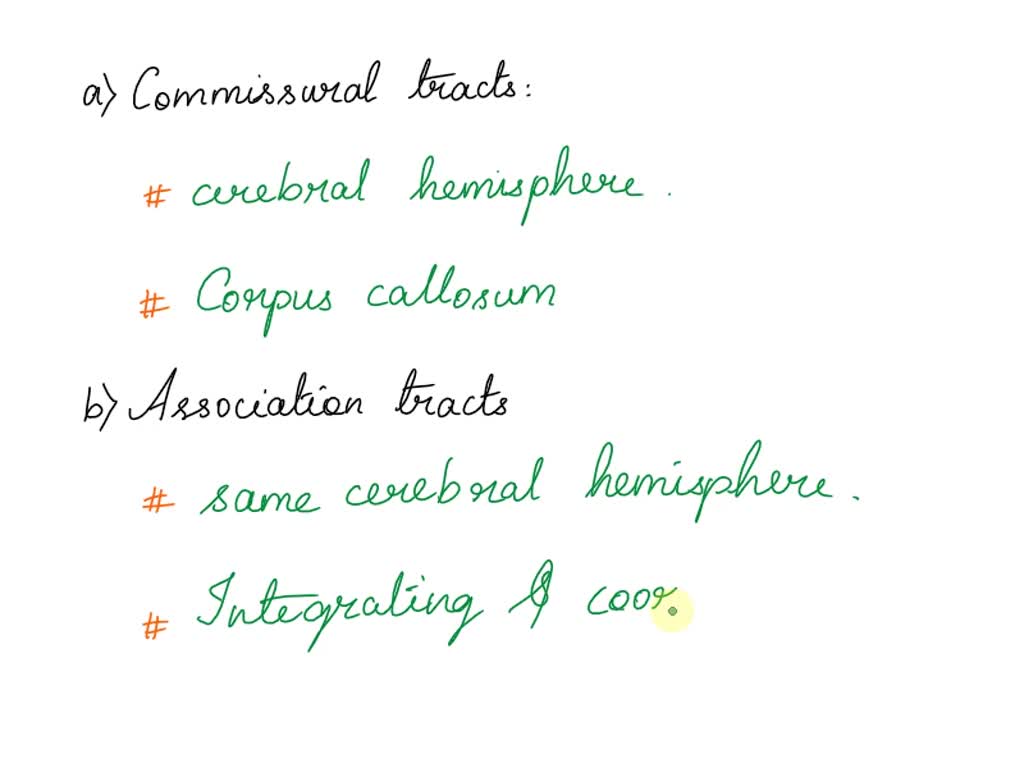 a) Commissural tracts:
# cerebral hemisphere.
# Corpus callosum
b) Association tracts
# same cerebral hemisphere.
# Integrating & coor